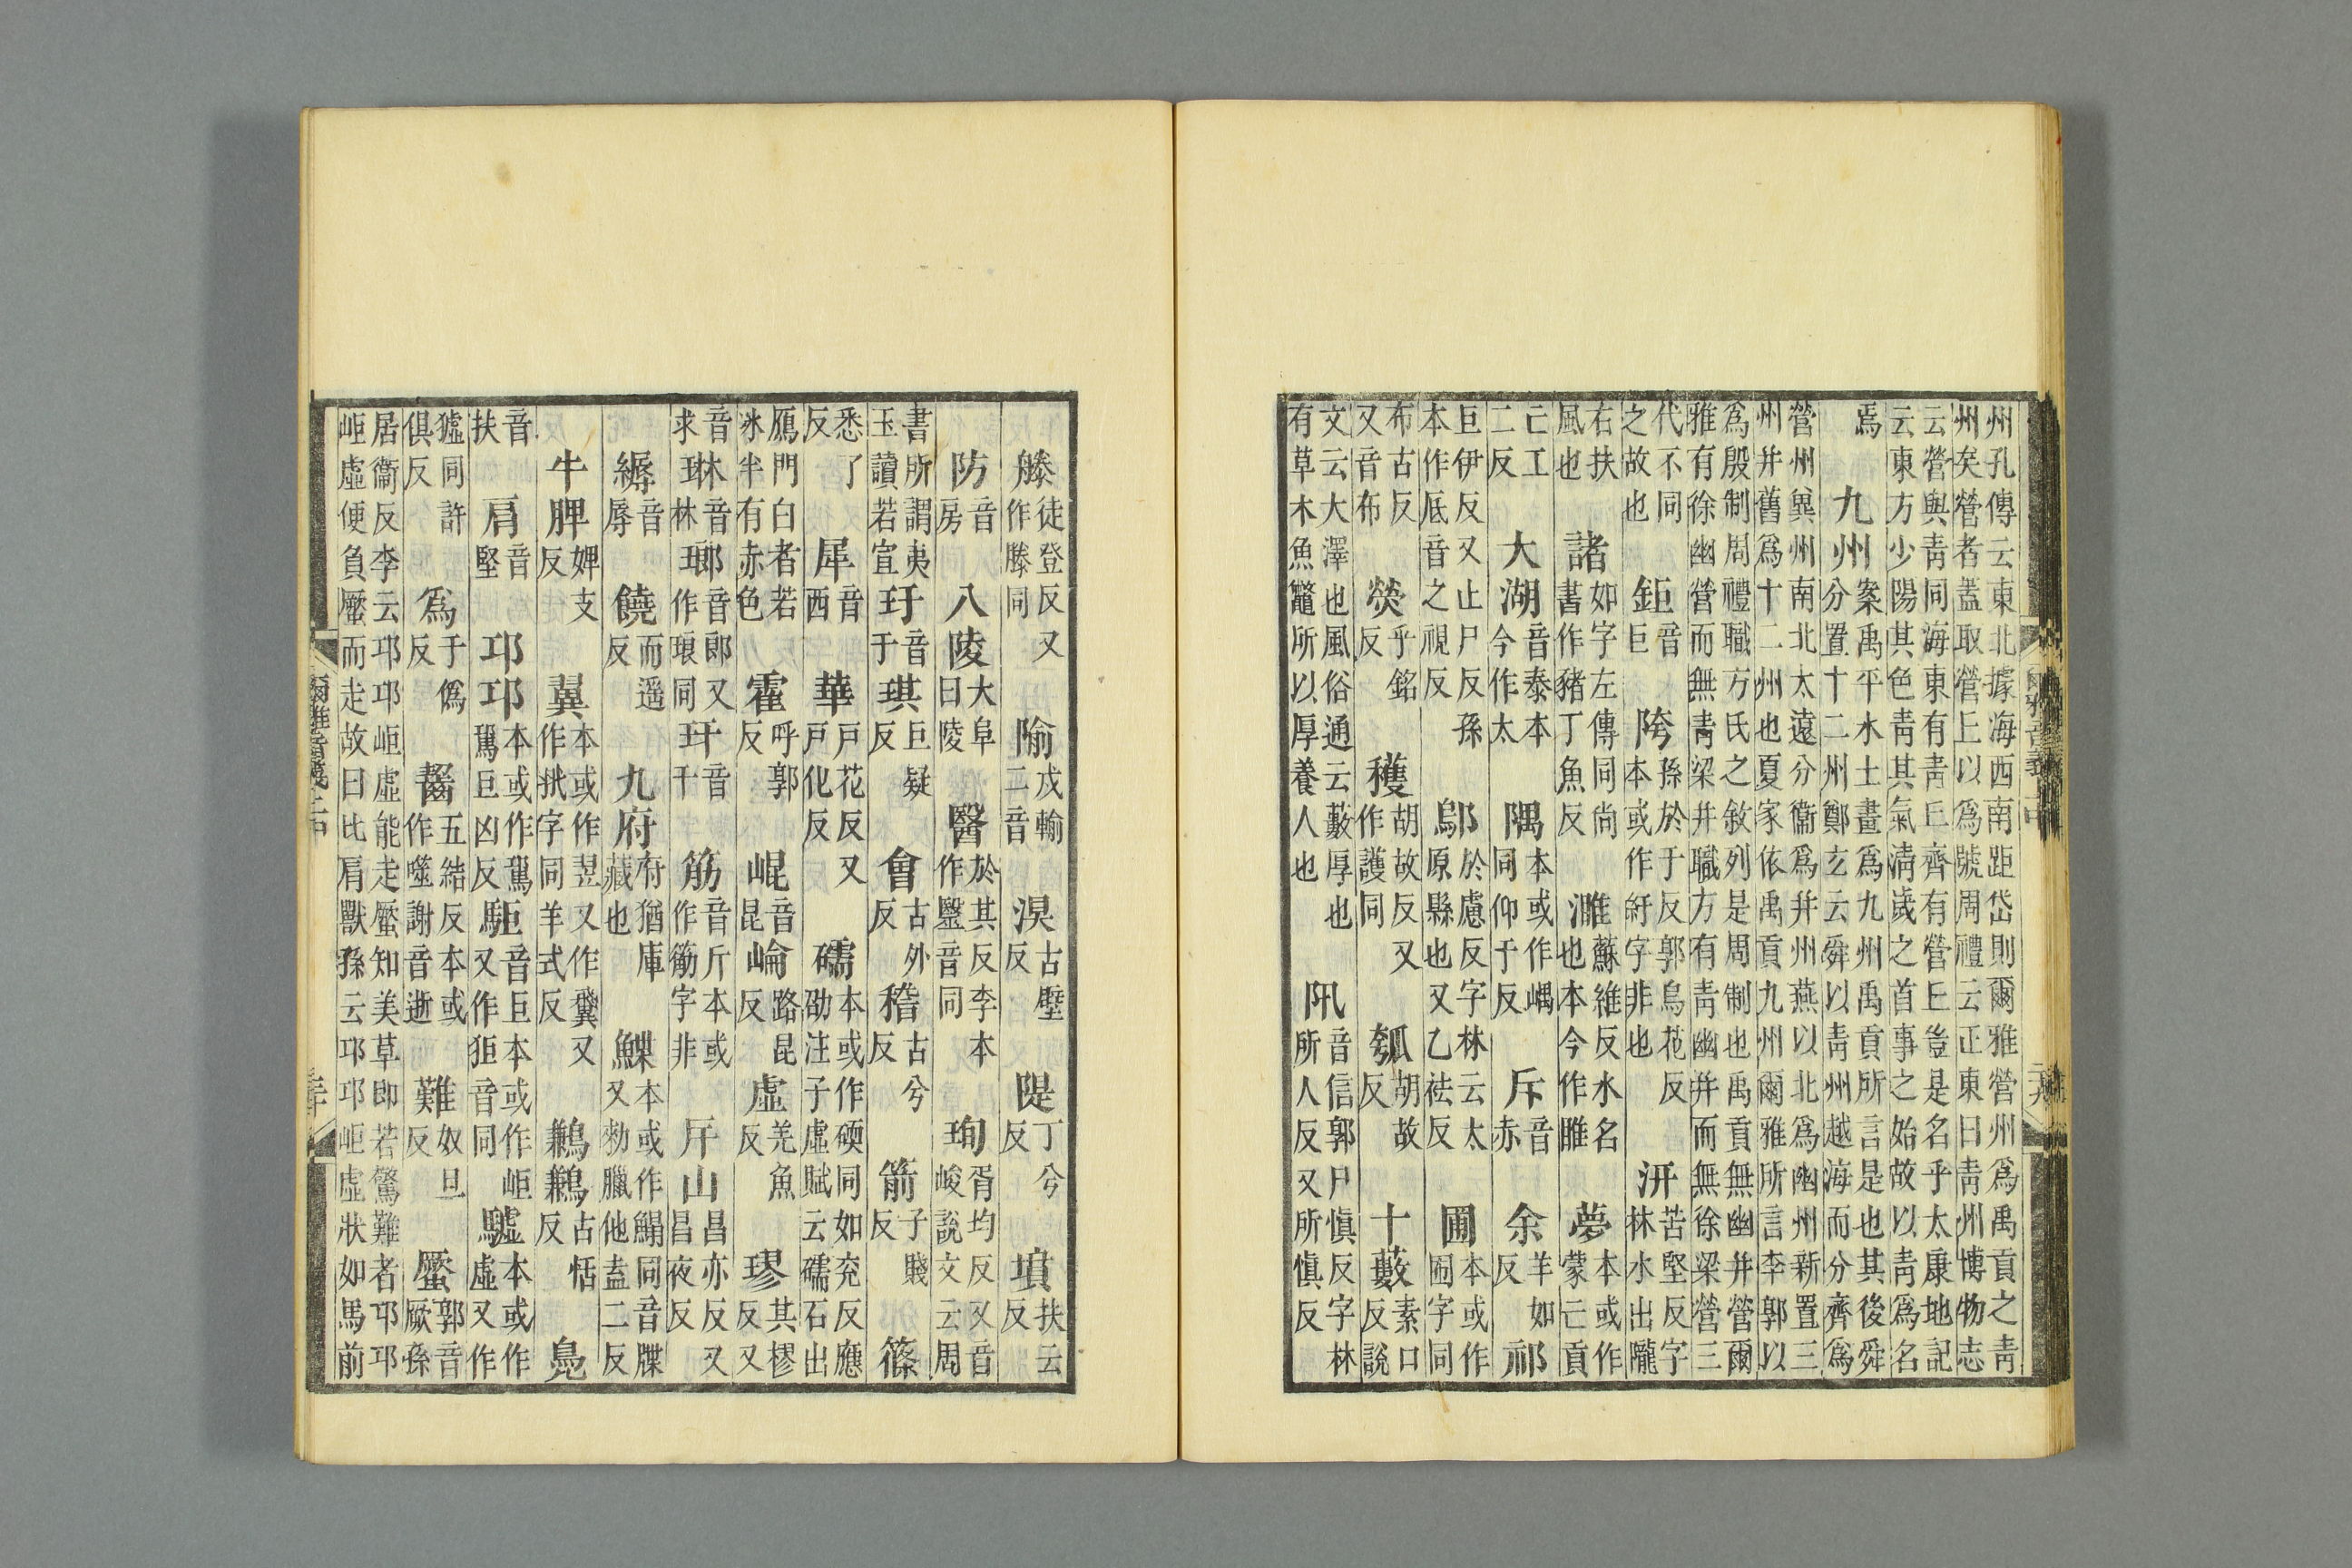 州孔傳云東北據海西南距岱則爾雅營州爲禹貢之青
州矣營者蓋取營丘以爲號周禮云正東曰青州博物志
云營與青同海東有青丘齊有營丘豈是名乎太康地記
云東方少陽其色青其氣清歲之首事之始故以青爲名
焉 九州 案禹平水土畫爲九州禹貢所言是也其後舜 分置十二州鄭玄云舜以青州越海而分齊爲
營州冀州南北太遠分衞爲并州燕以北爲幽州新置三
州并舊爲十二州也夏家依禹貢九州爾雅所言李郭以
爲殷制周禮職方氏之敘列是周制也禹貢無幽并營爾
雅有徐幽營而無青梁并職方有青幽并而無徐梁營三
代不同之故也 鉅 音巨 陓 孫於于反郭烏花反本或作紆字非也 汧 苦堅反字林水出隴
右扶風也 諸 如字左傳同尚書作豬丁魚反 濉 蘇維反水名也本今作睢 夢 本或作蒙亡貢
亡工二反 大湖 音泰本今作太 隅 本或作嵎同仰于反 斥 音赤 余 羊如反 祁
巨伊反又止尸反孫本作底音之視反 鄔 於慮反字林云太原縣也又乙祛反 圃 本或作囿字同
布古反又音布 熒 乎銘反 穫 胡故反又作護同 瓠 胡故反 十藪 素口反說
文云大澤也風俗通云藪厚也有草木魚鼈所以厚養人也 阠 音信郭尸愼反字林所人反又所愼反
滕 徒登反又作滕同 隃 戍輸二音 湨 古壁反 隄 丁兮反 墳 扶云反
防 音房 八陵 大阜曰陵 醫 於其反李本作毉音同 珣 胥均反又音峻說文云周
書所謂夷玉讀若宣 玗 音于 琪 巨疑反 會 古外反 稽 古兮反 箭 子賤反 篠
悉了反 犀 音西 華 戸花反又戸化反 礝 本或作碝同如兖反應劭注子虛賦云礝石出
鴈門白者若冰半有赤色 霍 呼郭反 崐 音昆 崘 路昆反 虛 羌魚反 璆 其樛反又
音求 琳 音林 瑯 音郎又作琅同 玕 音干 筋 音斤本或作筯字非 斥山 昌亦反又昌夜反
縟 音辱 饒 而遥反 九府 府猶庫藏也 鰈 本或作鰨同音牒又勑臘他盍二反
牛脾 婢支反 翼 本或作翌又作又作字同羊式反 鶼鶼 古恬反 鳧
音扶 肩 音堅 邛邛 本或作巨凶反 駏 音巨本或作岠又作音同 驉 本或作虛又作
同許俱反 爲 于僞反 齧 五結反本或作噬謝音逝 難 奴旦反 蟨 郭音厥孫
居衞反李云邛邛岠虛能走蟨知美草即若驚難者邛邛
岠虛便負蟨而走故曰比肩獸孫云邛邛岠虛狀如馬前
爾雅音義上中
三十